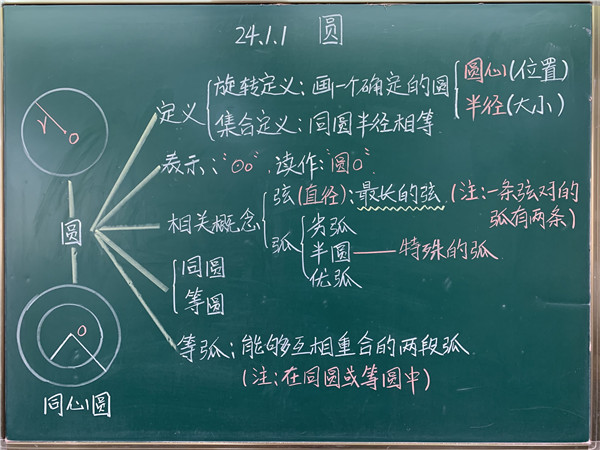 24.1.1 圆
r
O
定义
旋转定义：画一个确定的圆
圆心(位置)
半径(大小)
集合定义：同圆半径相等
表示："⊙o" 读作："圆O"
圆
相关概念
弦(直径)：最长的弦 (注：一条弦对的
弧有两条)
弧
劣弧
半圆——特殊的弧
优弧
同圆
等圆
O
同心圆
等弧：能够互相重合的两段弧
(注：在同圆或等圆中)